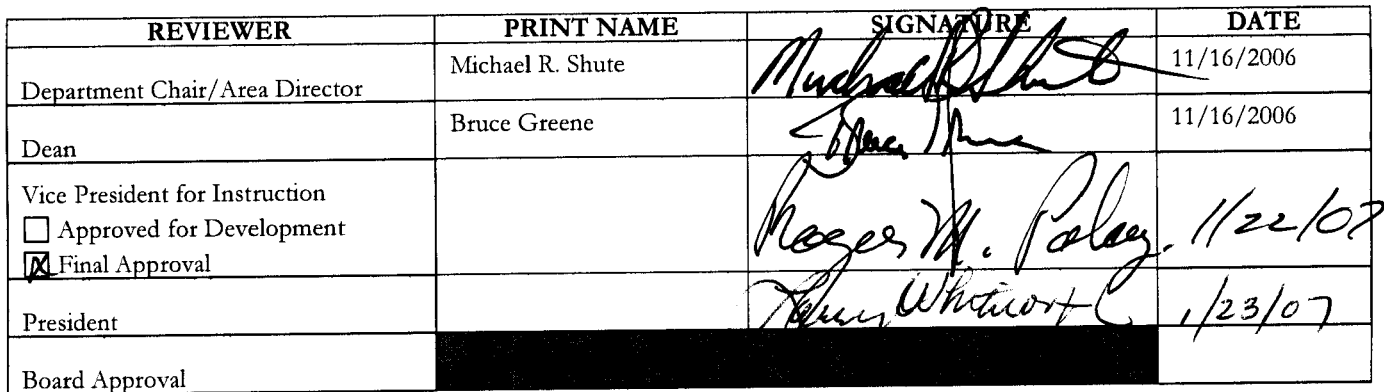 REVIEWER PRINT NAME SIGNATURE DATE
Department Chair/Area Director Michael R. Shute Michael R Shute 11/16/2006
Dean Bruce Greene Bruce 11/16/2006
Vice President for Instruction
☐ Approved for Development
☒ Final Approval Roger M. Palay. 1/22/07
President Larry Whitworth 1/23/07
Board Approval